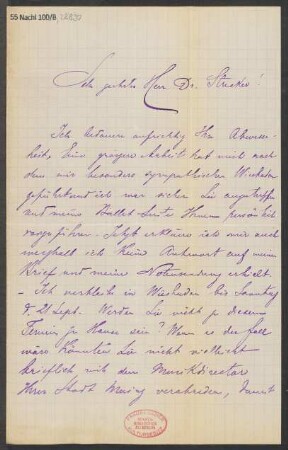 55 Nachl 100/B
Sehr geehrter Herr Dr. Strecker!
Ich bedauere aufrichtig Ihre Abwesen-
heit. Eine grössere Arbeit hat mich nach
dem mir besonders sympathischen Wiesbaden
geführt und ich war sicher Sie anzutreffen
und meine Ballet-Suite Ihnen persönlich
vorzuführen. Jetzt erkläre ich mir auch
weshalb ich keine Antwort auf meine
Brief und meine Notensendung erhielt.
– Ich verbleibe in Wiesbaden bis Sonntag
d. 21 Sept. Werden Sie nicht zu diesem
Termin zu Hause sein? Wenn es der Fall
wäre könnten Sie nicht vielleicht
brieflich mit dem Musikdirector
Ihrer Stadt Mainz verabreden, damit